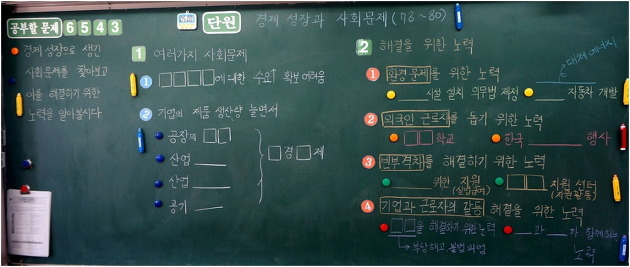 공부할 문제 6 5 4 3
단원 경제 성장과 사회문제 (78~80)
경제 성장으로 생긴
사회문제를 찾아보고
이를 해결하기 위한
노력을 알아봅시다.
1 여러가지 사회문제
1 □□□□에 대한 수요↑ 확보 어려움
2 기업의 제품 생산량 늘면서
공장의 □□
산업
산업
공기
□경□제
2 해결을 위한 노력
1 환경문제를 위한 노력
대체 에너지
시설 설치 의무법 제정
자동차 개발
2 외국인 근로자를 돕기 위한 노력
□□학교
한국 행사
3 빈부격차를 해결하기 위한 노력
위한 지원
(실업급여)
□□지원 센터
4 기업과 근로자의 갈등 해결을 위한 노력
□□을 해결하기 위한 노력
과 가 함께하는
노력
부당해고